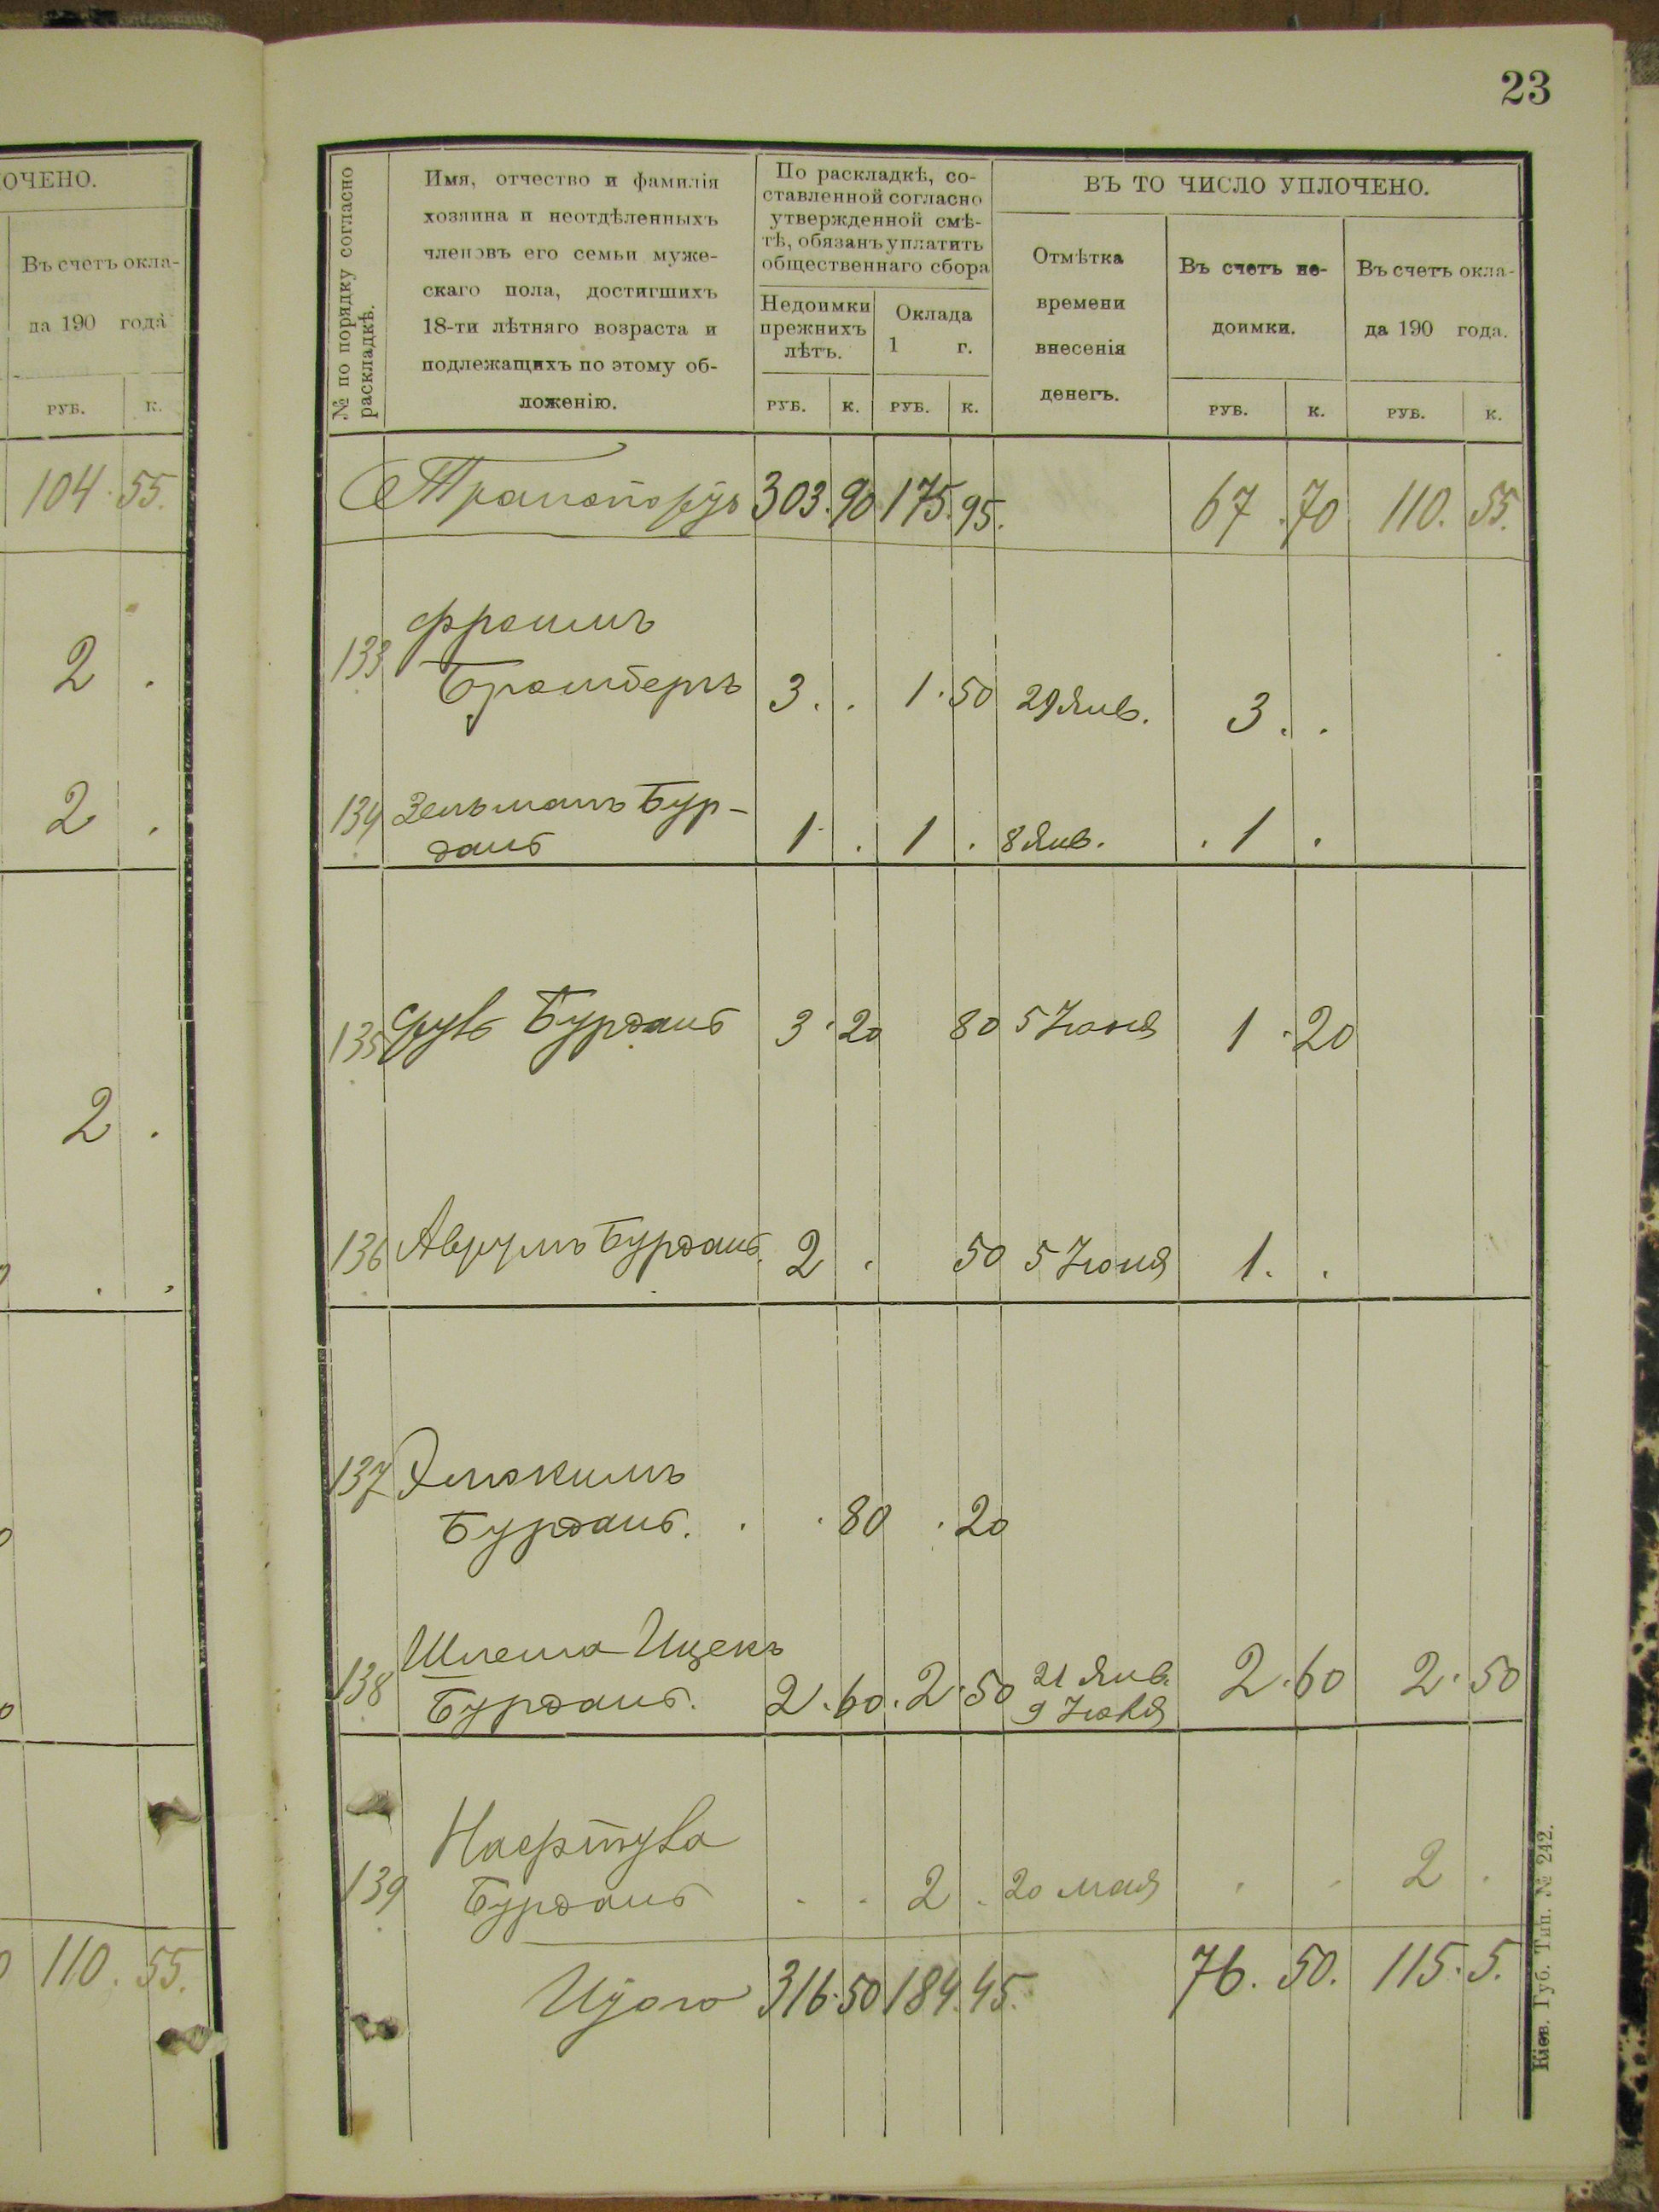 23
ОЧЕНО.
Въ счетъ окла-
да 190 года
РУБ. К.
104. 55.
2 .
2 .
2 .
110. 55.
№ по порядку согласно
раскладкѣ.
Имя, отчество и фамилія
хозяина и неотдѣленныхъ
членовъ его семьи муже-
скаго пола, достигшихъ
18-ти лѣтняго возраста и
подлежащихъ по этому об-
ложенію.
По раскладкѣ, со-
ставленной согласно
утвержденной смѣ-
тѣ, обязанъ уплатить
общественнаго сбора
Недоимки
прежнихъ
лѣтъ.
Оклада
1 г.
РУБ. К. РУБ. К.
ВЪ ТО ЧИСЛО УПЛОЧЕНО.
Отмѣтка
времени
внесенія
денегъ.
Въ счетъ не-
доимки.
Въ счетъ окла-
да 190 года.
РУБ. К. РУБ. К.
Транспортъ 303. 90 175. 95. 67. 70 110. 55.
Фроимъ
133 Бромбергъ 3. . 1. 50 29 Янв. 3. .
134 Зельманъ Бур-
данъ 1 . 1 . 8 Янв. . 1 .
135 Бурданъ 3. 20 80 5 Іюня 1. 20
136 Аврумъ Бурданъ. 2 . 50 5 Іюня 1. .
137 Элюкимъ
Бурданъ. . . 80 . 20
138 Шлема Ицекъ
Бурданъ. 2. 60. 2. 50 21 Янв. 2. 60 2. 50
9 Іюля
139
Бурданъ . . 2 . 20 мая . . 2 .
Итого 316. 50 184. 45. 76. 50. 115. 5.
Кіев. Губ. Тип. № 242.